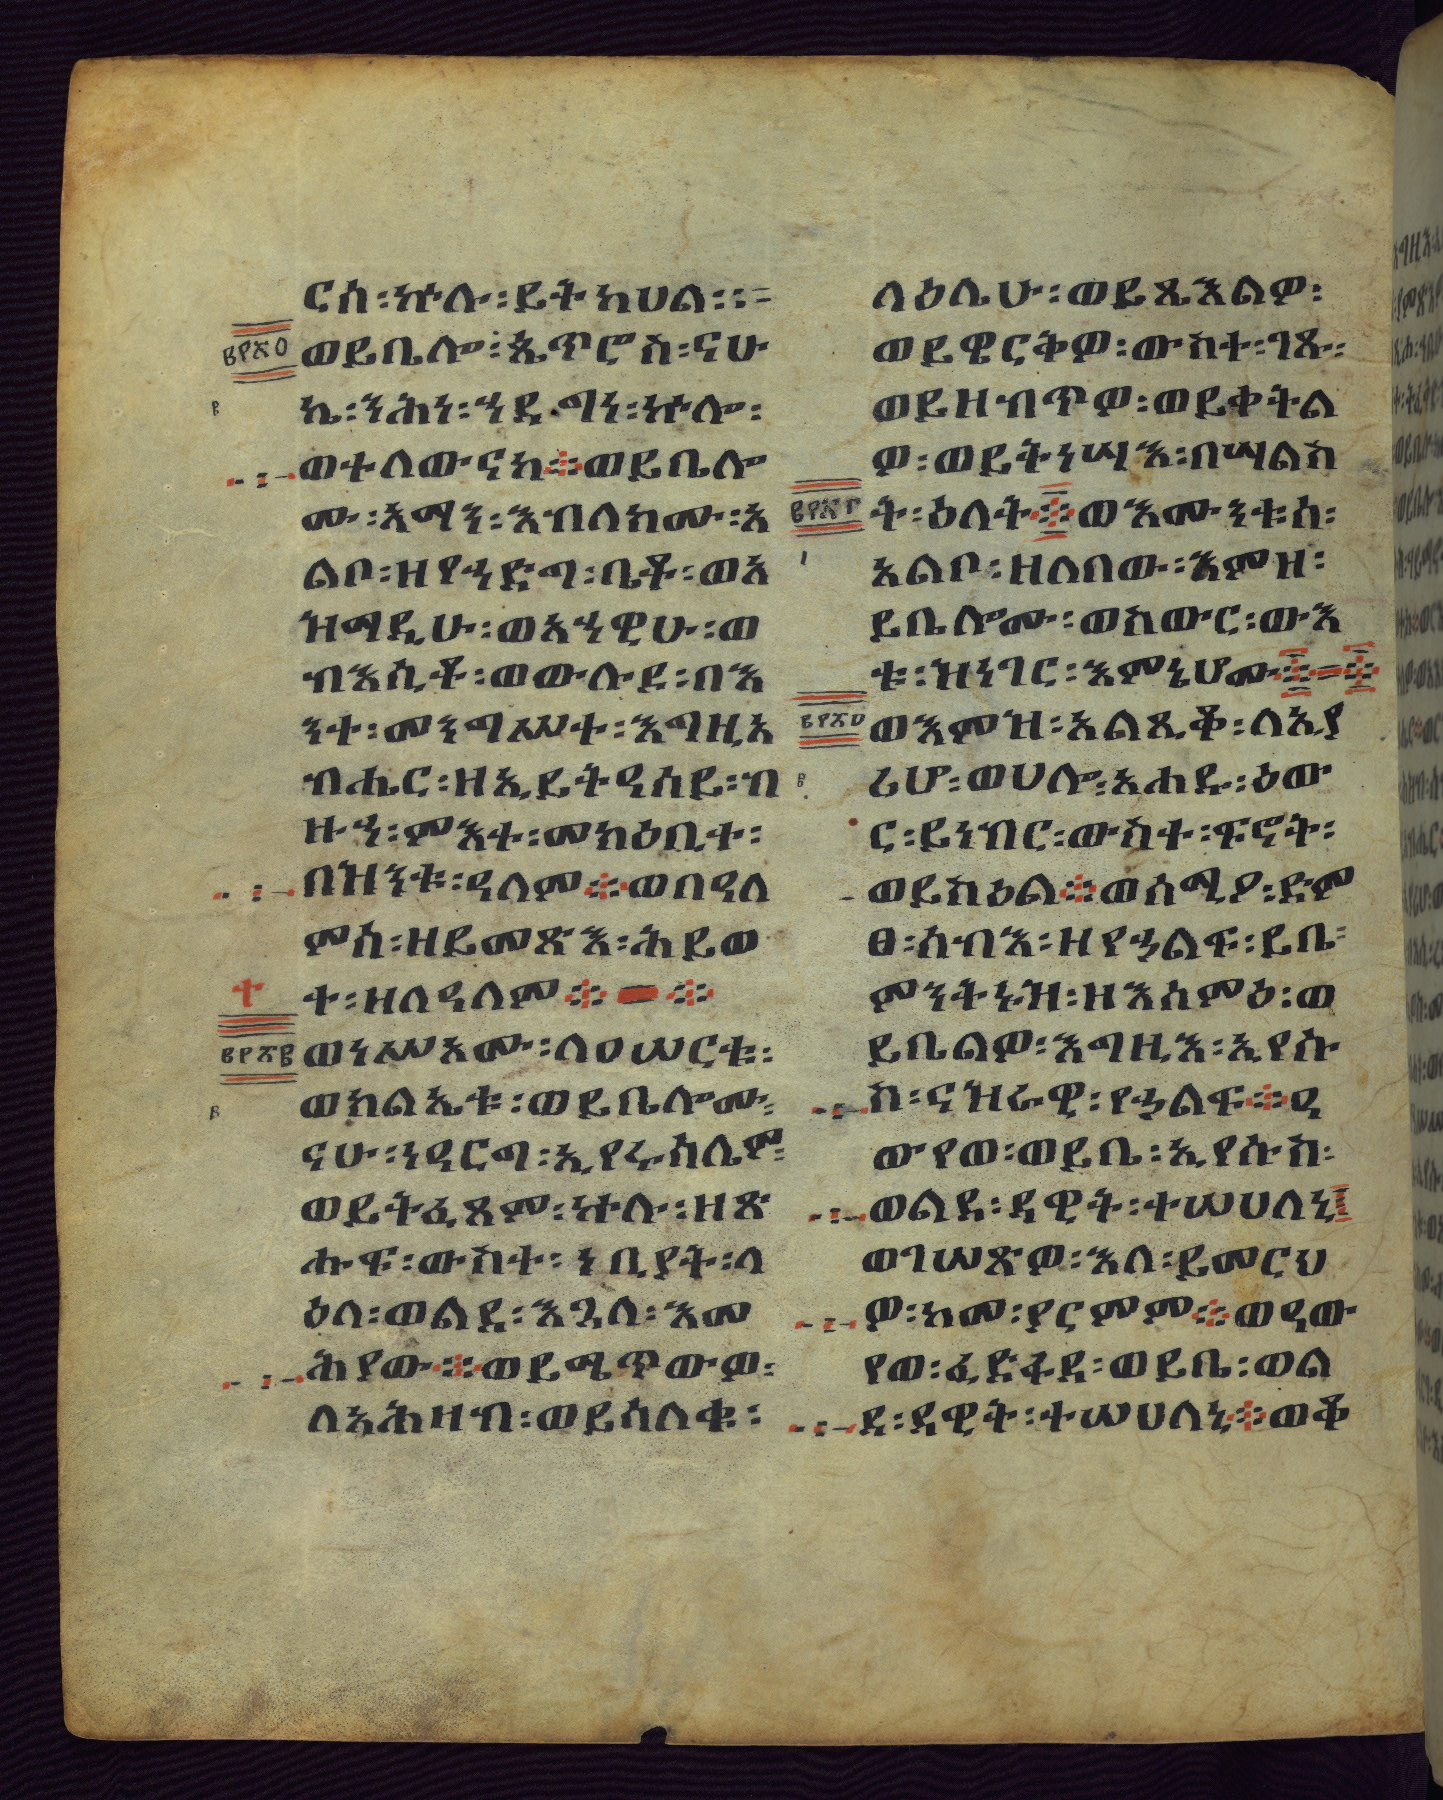 ርስ፡ኵሉ፡ይትከሀል፡፡=
፪፻፳፬ ወይቤሎ፡ጴጥሮስ፡ናሁ
ኬ፡ንሕነ፡ኀደግነ፡ኵሎ፡
ወተለውናከ፨ወይቤሎ
ሙ፡አማን፡እብለክሙ፡አ
ልቦ፡ዘየኀድግ፡ቤቶ፡ወአ
ዝማዲሁ፡ወአኀዊሁ፡ወ
ብእሲቶ፡ወውሉደ፡በእ
ንተ፡መንግሥተ፡እግዚአ
ብሔር፡ዘኢይትዔሰይ፡ብ
ዙኀ፡ምእተ፡መክዕቢተ፡
በዝንቱ፡ዓለም፨ወበዓለ
ምሰ፡ዘይመጽእ፡ሕይወ
ተ፡ዘለዓለም፨ ፨
ወነሥኦሙ፡ለ፲ወ፪ርቱ፡
ወክልኤቱ፡ወይቤሎሙ፡
ናሁ፡ነዓርግ፡ኢየሩሳሌም፡
ወይትፌጸም፡ኵሉ፡ዘጽ
ሑፍ፡ውስተ፡ነቢያት፡ላ
ዕለ፡ወልደ፡እጓለ፡እመ
ሕያው፨ወይሜጥውዎ፡
ለአሕዛብ፡ወይሳለቁ፡
ላዕሌሁ፡ወይጼእልዎ፡
ወይዌርቅዎ፡ውስተ፡ገጹ፡
ወይዘብጥዎ፡ወይቀትል
ዎ፡ወይትነሣእ፡በሣልስ
ት፡ዕለት፨ወእሙንቱሰ፡
አልቦ፡ዘለበው፡እምዘ፡
ይቤሎሙ፡ወስውር፡ውእ
ቱ፡ዝነገር፡እምኔሆሙ፨፨
ወእምዝ፡አልጺቆ፡ለኢያ
ሪሆ፡ወሀሎ፡አሐዱ፡ዕው
ር፡ይነብር፡ውስተ፡ፍኖት፡
ወይስዕል፨ወሰሚዖ፡ድም
ፀ፡ሰብእ፡ዘየኃልፍ፡ይቤ፡
ምንትኑዝ፡ዘእሰምዕ፡ወ
ይቤልዎ፡እግዚእ፡ኢየሱ
ስ፡ናዝራዊ፡የኃልፍ፨ዐ
ውየወ፡ወይቤ፡ኢየሱስ፡
ወልደ፡ዳዊት፡ተሠሀለኒ፨
ወገሠጽዎ፡እለ፡ይመርህ
ዎ፡ከመ፡ያርምም፨ወዓው
የወ፡ፈድፋደ፡ወይቤ፡ወል
ደ፡ዳዊት፡ተሠሀለኒ፨ወቆ